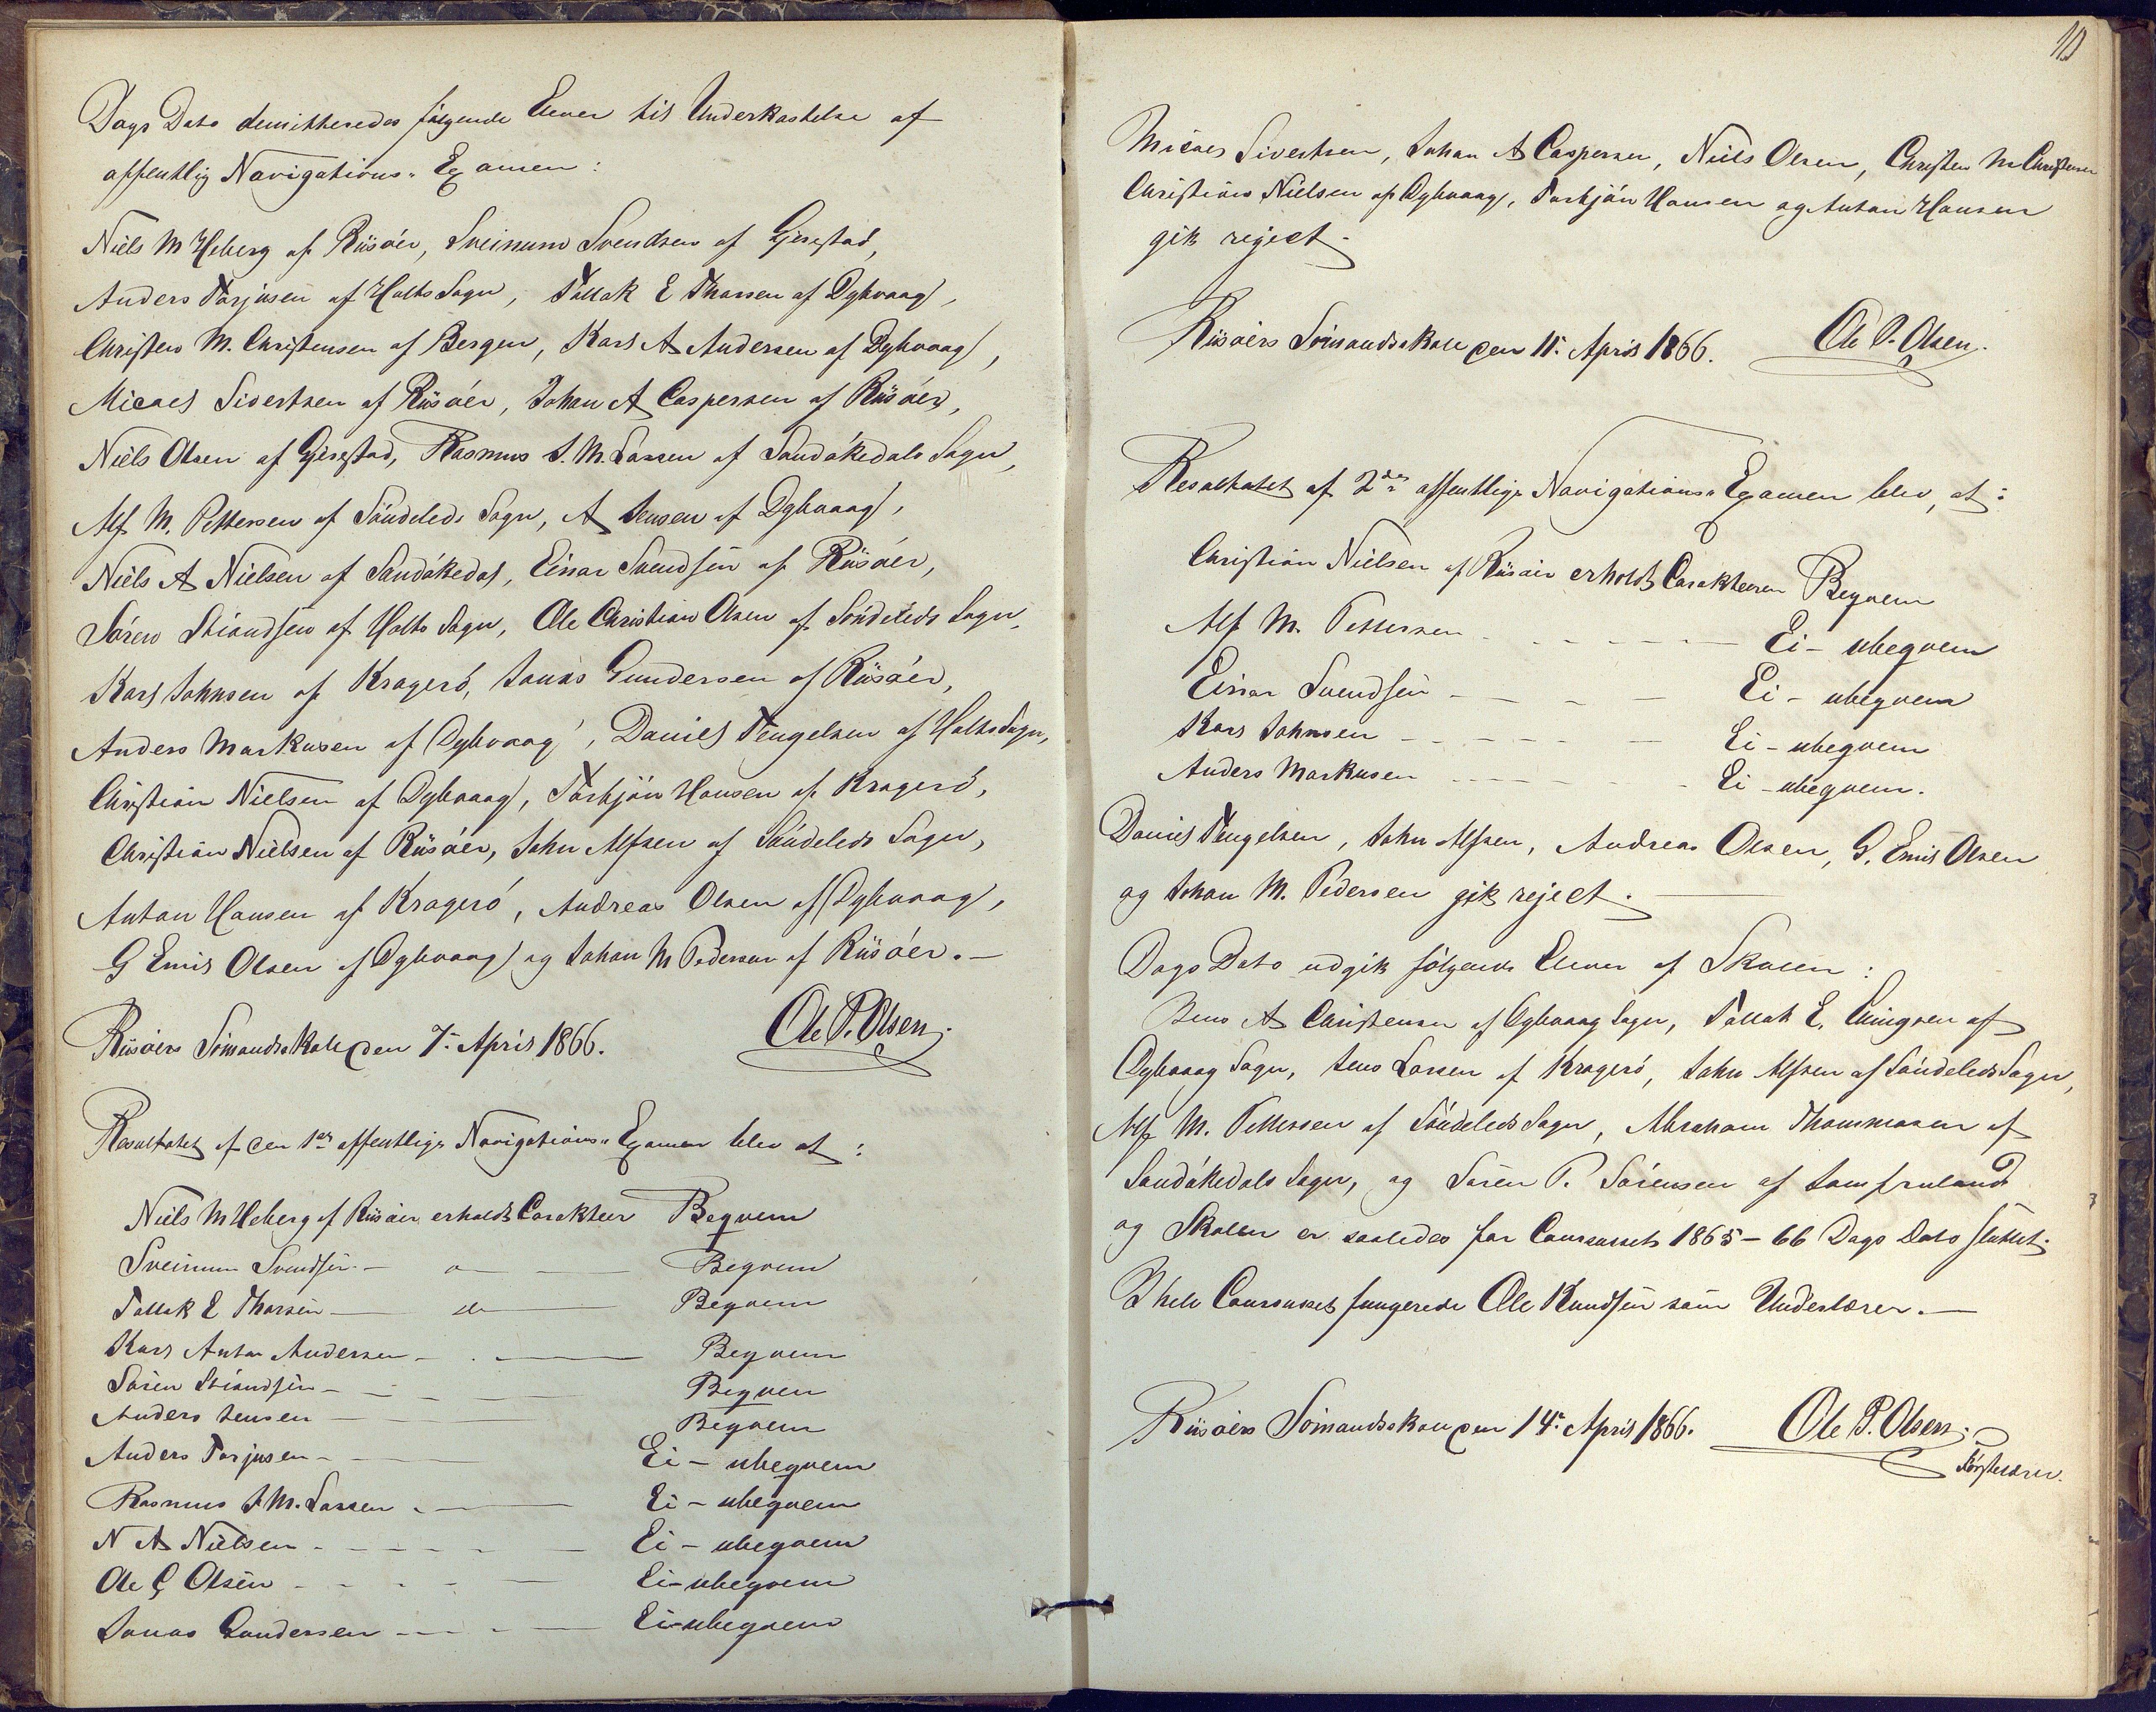 Dags Dato demitteredes følgende Elever til Underkastelse af
offentlig Navigations-Examen:
Niels M Heberg af Riisøer, Sveinum Svendsen af Gjerestad,
Anders Torjusen af Holts Sogn, Tallak E Thorsen af Dybvaag,
Christen M. Christensen af Bergen, Karl A Andersen af Dybvaag,
Micael Sivertsen af Riisøer, Johan A Caspersen af Riisøer,
Niels Olsen af Gjerestad, Rasmus S. M. Larsen af Sandøkedals Sogn,
Alf M. Pettersen af Søndeleds Sogn, A Jensen af Dybvaag,
Niels A Nielsen af Sandøkedal, Einar Svendsen af Riisøer,
Søren Stiandsen af Holts Sogn, Ole Christian Olsen af Søndeleds Sogn,
Karl Johnsen af Kragerø, Jonas Gundersen af Riisøer,
Anders Markusen af Dybvaag, Daniel Tengelsen af Holts Sogn,
Christian Nielsen af Dybvaag, Torbjøn Hansen af Kragerø,
Christian Nielsen af Riisøer, John Alfsen af Søndeleds Sogn,
Anton Hansen af Kragerø, Andreas Olsen af Dybvaag,
G Emil Olsen af Dybvaag og Johan M Pedersen af Riisøer.—
Riisøers Sømandsskole den 7de April 1866. Ole P. Olsen.
Resultatet af den 1ste offentlige Navigations-Examen blev at:
Niels M Heberg af Riisøer erholdt Carakteer Beqvem
Sveinum Svendsen — o — Beqvem
Tallak E Thorsen — do — Beqvem
Karl Anton Andersen — Beqvem
Søren Stiandsen — Beqvem
Anders Jensen — Beqvem
Anders Torjusen — Ei – ubeqvem
Rasmus S. M. Larsen — Ei – ubeqvem
N A Nielsen — Ei – ubeqvem
Ole C Olsen — Ei – ubeqvem
Jonas Gundersen — Ei – ubeqvem
10
Micael Sivertsen, Johan A Caspersen, Niels Olsen, Christen M Christensen
Christian Nielsen af Dybvaag, Torbjøn Hansen og Anton Hansen
gik reject.
Riisøers Sømandsskole den 11te April 1866. Ole P. Olsen.
Resultatet af 2den offentlige Navigations-Examen blev, at:
Christian Nielsen af Riisøer erholdt Carakteeren Beqvem
Alf M. Pettersen — Ei – ubeqvem
Einar Svendsen — Ei – ubeqvem
Karl Johnsen — Ei – ubeqvem
Anders Markusen — Ei – ubeqvem.
Daniel Tengelsen, John Alfsen, Andreas Olsen, G. Emil Olsen
og Johan M. Pedersen gik reject.—
Dags Dato udgik følgende Elever af Skolen:
Jens A Christensen af Dybvaag Sogn, Tallak E. af
Dybvaag Sogn, Jens Larsen af Kragerø, John Alfsen af Søndeleds Sogn,
Alf M. Pettersen af Søndeleds Sogn, Abraham Thommasen af
Sandøkedals Sogn, og Søren P. Sørensen af Jomfruland
og Skolen er saaledes for Coursusset 1865–66 Dags Dato sluttet.
I hele Coursusset fungerede Ole Knudsen som Underlærer.—
Riisøers Sømandsskole den 14de April 1866. Ole P. Olsen.
Førstelærer.